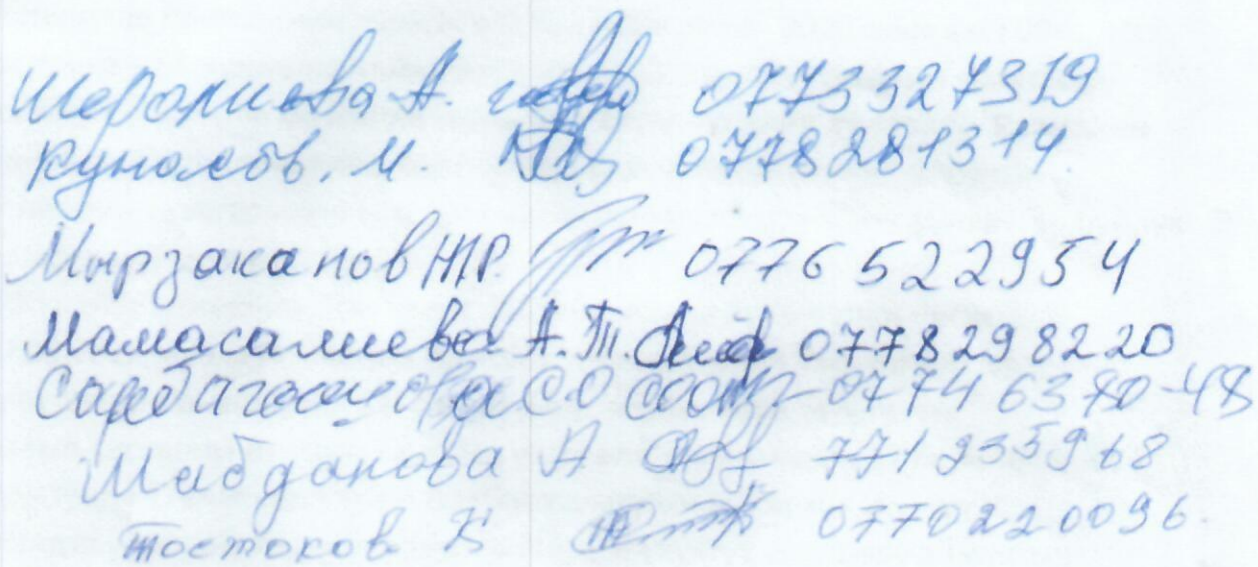 Шералиева А. 0773327319
Куналов. М. 0778281314.
Мырзаканов Ж.Р. 0776522954
Мамасалиева А.Т. 0778298220
СО 07746380-48
Шабданова А 771235968
Тостоков К 0770220096.